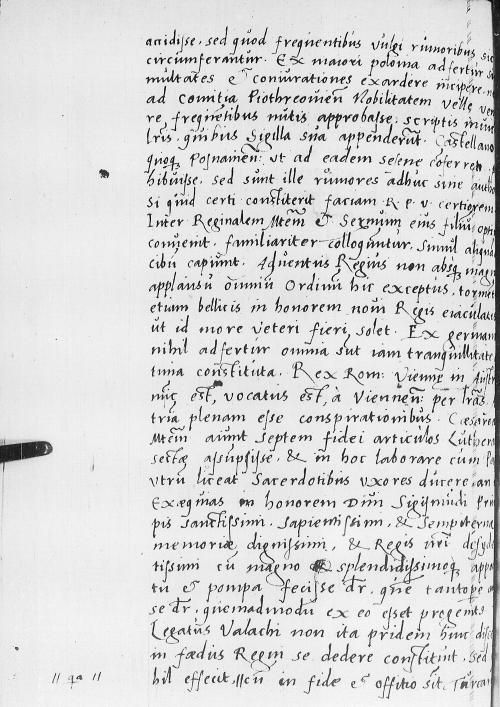 accidisse, sed quod frequentibus vulgi rumoribus sic
circumferantur. Ex maiori polonia adfertur
multates et coniurationes exardere incipere,
ad comitia Piothrcouien Nobilitatem velle
re, frequentibus nutis approbasse, scriptis
lris, quibus Sigilla sua appenderunt. Castellano
quoq Posnanien: ut ad eadem sese coferret
hibuisse. sed sunt ille rumores adhuc sine
Si quid certi constiterit faciam R. p. v. certiorem
Inter Reginalem Mtem et Sermum eius filiu
conuenit. familiariter colloquntur, simul aliqua
cibu capiunt. Aduentus Regius non absq
applausu omniu Ordinu hic exceptus, torme
etum bellicis in honorem noui Regis eiaculatis
ut id more veteri fieri solet. Ex germani
nihil adfertur omnia sut iam tranquillitate
tinia constituta. Rex Rom: Vienne in Aust
nuc est, vocatus est, à Viennen: per lras
tria plenam esse conspirationibus. Cæsarea
Mtem aiunt septem fidei articulos Luthera
sectæ assupsisse, & in hoc laborare cum
vtru liceat Sacerdotibus vxores ducere, an
Exæquias in honorem Diui Sigismudi Prin
pis sanctissimi, sapientissimi, & sempiterna
memoriæ dignissimi, & Regis nri desyde
tissimi cu magno & splendidissimoq appa
tu et pompa fecisse dr, que tantope
se dr, quemadmodu ex eo esset progenit
Legatus Valachi non ita pridem huc
in fædus Regni se dedere constituit, Sed
hil effecit, cu in fide et offitio sit. Turcar